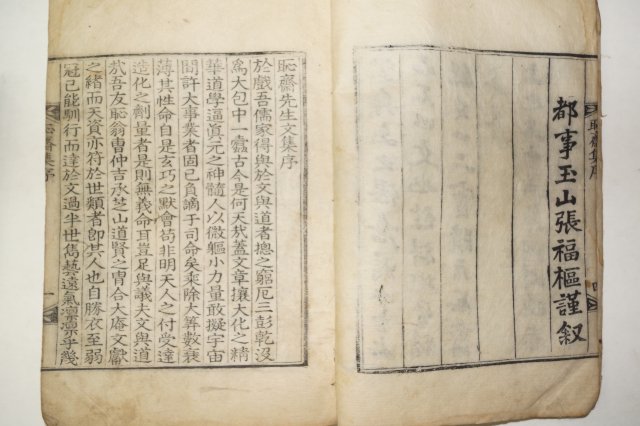 都事玉山張福樞謹叙
恥齋集序
四
恥齋先生文集序
於戲吾儒家得與於文與道者揔之窮厄三彭乾沒
爲大包中一蠹古今是何天哉蓋文章攘大化之精
華道學逼眞元之神髓人以微軀小力量敢擬宇宙
間許大事業者固已負謫于司命矣乘除大算數衰
薄其性命自是玄巧之默會苟非明天人之付受達
造化之劑量者是則無義命耳豈足與議夫文與道
哉吾友恥翁曺仲吉丞芝山道賢之冑合大庵文獻
之緖而天資亦符於世類者卽其人也自勝衣至弱
冠已能馴行而達於文過半世雋藝遠氣凛凛乎幾
恥齋集序
一